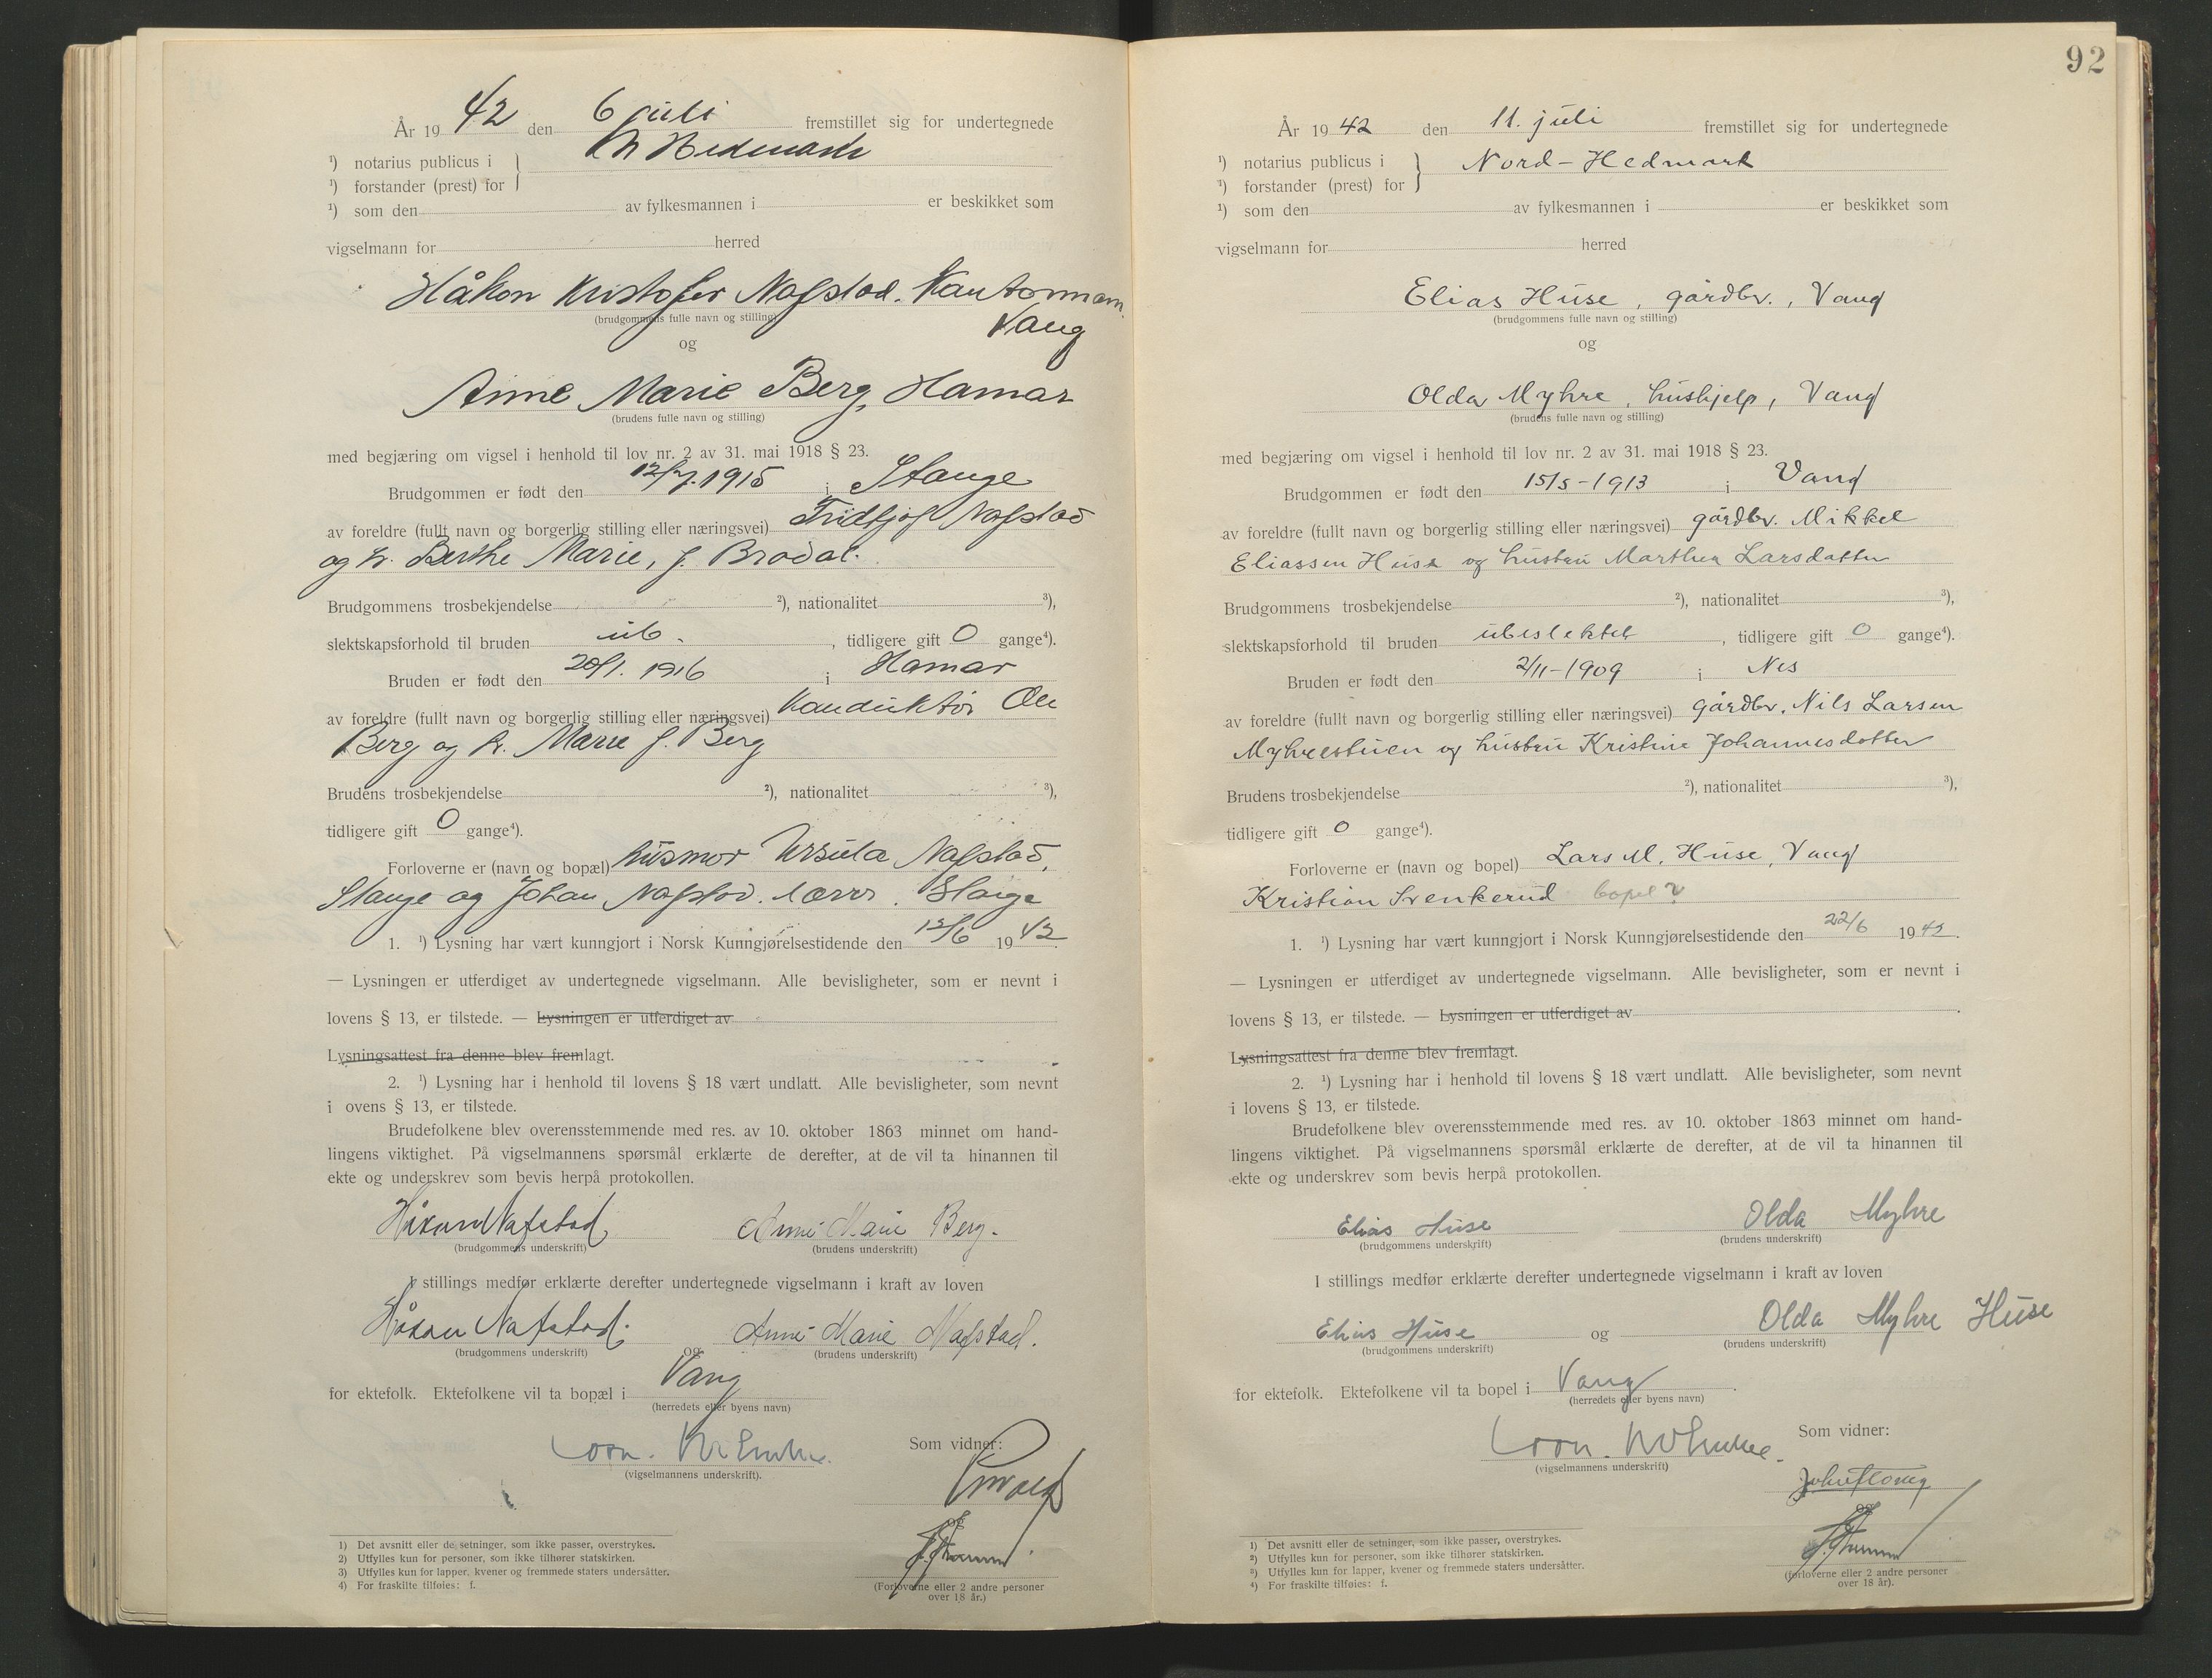 År 19 42 den 6 juli fremstillet sig for undertegnede
¹) notarius publicus i
N Hedmark
¹) forstander (prest) for
¹) som den av fylkesmannen i er beskikket som
vigselmann for herred
Håkon Kristofer Nafstad. Kontormann.
(brudgommens fulle navn og stilling)
Vang
og
Anne Marie Berg, Hamar
(brudens fulle navn og stilling)
med begjæring om vigsel i henhold til lov nr. 2 av 31. mai 1918 § 23.
Brudgommen er født den 12/7.1915 i Stange
av foreldre (fullt navn og borgerlig stilling eller næringsvei) Fridtjof Nafstad
og h. Berthe Marie, f. Brodal.
Brudgommens trosbekjendelse ²), nationalitet ³),
slektskapsforhold til bruden ub. , tidligere gift 0 gange⁴).
Bruden er født den 20/1. 1916 i Hamar
av foreldre (fullt navn og borgerlig stilling eller næringsvei) Konduktør Ole
Berg og h. Marie f. Berg
Brudens trosbekjendelse ²), nationalitet ³),
tidligere gift 0 gange⁴).
Forloverne er (navn og bopæl) husmor Ursula Nafstad,
Stange og Johan Nafstad. lærer. Stange
1. ¹) Lysning har vært kunngjort i Norsk Kunngjørelsestidende den 12/6 19 42
— Lysningen er utferdiget av undertegnede vigselmann. Alle bevisligheter, som er nevnt i
lovens § 13, er tilstede. — Lysningen er utferdiget av
Lysningsattest fra denne blev fremlagt.
2. ¹) Lysning har i henhold til lovens § 18 vært undlatt. Alle bevisligheter, som nevnt
i ovens § 13, er tilstede.
Brudefolkene blev overensstemmende med res. av 10. oktober 1863 minnet om hand-
lingens viktighet. På vigselmannens spørsmål erklærte de derefter, at de vil ta hinannen til
ekte og underskrev som bevis herpå protokollen.
Håkon Nafstad Anne-Marie Berg.
(brudgommens underskrift) (brudens underskrift)
I stillings medfør erklærte derefter undertegnede vigselmann i kraft av loven
Håkon Nafstad. Anne-Marie Nafstad.
(brudgommens underskrift) og (brudens underskrift)
for ektefolk. Ektefolkene vil ta bopæl i Vang
(herredets eller byens navn)
Som vidner:
(vigselmannens underskrift).
og
1) Det avsnitt eller de setninger, som ikke passer, overstrykes.
2) Utfylles kun for personer, som ikke tilhører statskirken.
3) Utfylles kun for lapper, kvener og fremmede staters undersåtter.
4) For fraskilte tilføies: f.
(Forloverne eller 2 andre personer
over 18 år.)
92
År 19 42 den 11. juli fremstillet sig for undertegnede
¹) notarius publicus i
Nord-Hedmark
¹) forstander (prest) for
¹) som den av fylkesmannen i er beskikket som
vigselmann for herred
Elias Huse, gårdbr., Vang
(brudgommens fulle navn og stilling)
og
Olda Myhre, hushjelp, Vang
(brudens fulle navn og stilling)
med begjæring om vigsel i henhold til lov nr. 2 av 31. mai 1918 § 23.
Brudgommen er født den 15/5-1913 i Vang
av foreldre (fullt navn og borgerlig stilling eller næringsvei) gårdbr. Mikkel
Eliassen Huse og hustru Marthea Larsdatter
Brudgommens trosbekjendelse ²), nationalitet ³),
slektskapsforhold til bruden ubeslektet , tidligere gift 0 gange⁴).
Bruden er født den 2/11-1909 i Nes
av foreldre (fullt navn og borgerlig stilling eller næringsvei) gårdbr. Nils Larsen
Myhrestuen og hustru Kristine Johannesdatter
Brudens trosbekjendelse ²), nationalitet ³),
tidligere gift 0 gange⁴).
Forloverne er (navn og bopel) Lars M. Huse, Vang
Kristian Svenkerud bopel?
1. ¹) Lysning har vært kunngjort i Norsk Kunngjørelsestidende den 22/6 19 42.
— Lysningen er utferdiget av undertegnede vigselmann. Alle bevisligheter, som er nevnt i
lovens § 13, er tilstede. — Lysningen er utferdiget av .
Lysningsattest fra denne blev fremlagt.
2. ¹) Lysning har i henhold til lovens § 18 vært undlatt. Alle bevisligheter, som nevnt
i lovens § 13, er tilstede.
Brudefolkene blev overensstemmende med res. av 10. oktober 1863 minnet om hand-
lingens viktighet. På vigselmannens spørsmål erklærte de derefter, at de vil ta hinannen til
ekte og underskrev som bevis herpå protokollen.
Elias Huse Olda Myhre
(brudgommens underskrift) (brudens underskrift)
I stillings medfør erklærte derefter undertegnede vigselmann i kraft av loven
Elias Huse og Olda Myhre Huse
(brudgommens underskrift) (brudens underskrift)
for ektefolk. Ektefolkene vil ta bopel i Vang .
(herredets eller byens navn)
Som vidner:
(vigselmannens underskrift)
og
1) Det avsnitt eller de setninger, som ikke passer, overstrykes.
²) Utfylles kun for personer, som ikke tilhører statskirken.
³) Utfylles kun for lapper, kvener og fremmede staters undersåtter.
⁴) For fraskilte tilføies: f.
(forloverne eller 2 andre personer
over 18 år).